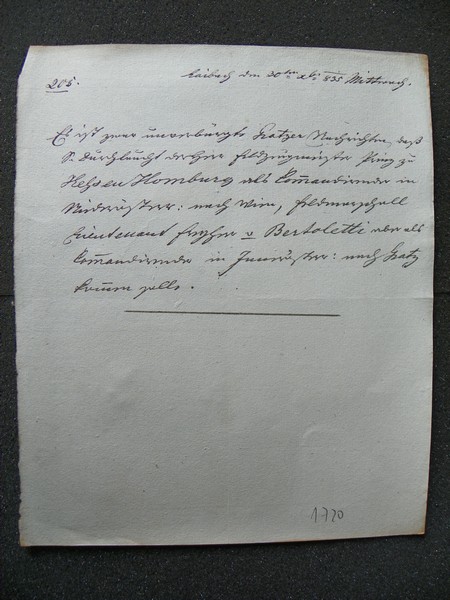 205.
Laibach den 30ten Xbr 835 Mittwoch.
Es ist zwar unverbürgte Gratzer Nachrichten, daß
S. Durchlaucht der Herr Feldzeugmeister Prinz zu
Hessen Homburg als Commandirender in
Niederöster: nach Wien, Feldmarschall
Lieutenant Freyherr v Bertoletti aber als
Commandirender in Inneröster: nach Gratz
kommen solle.
1720